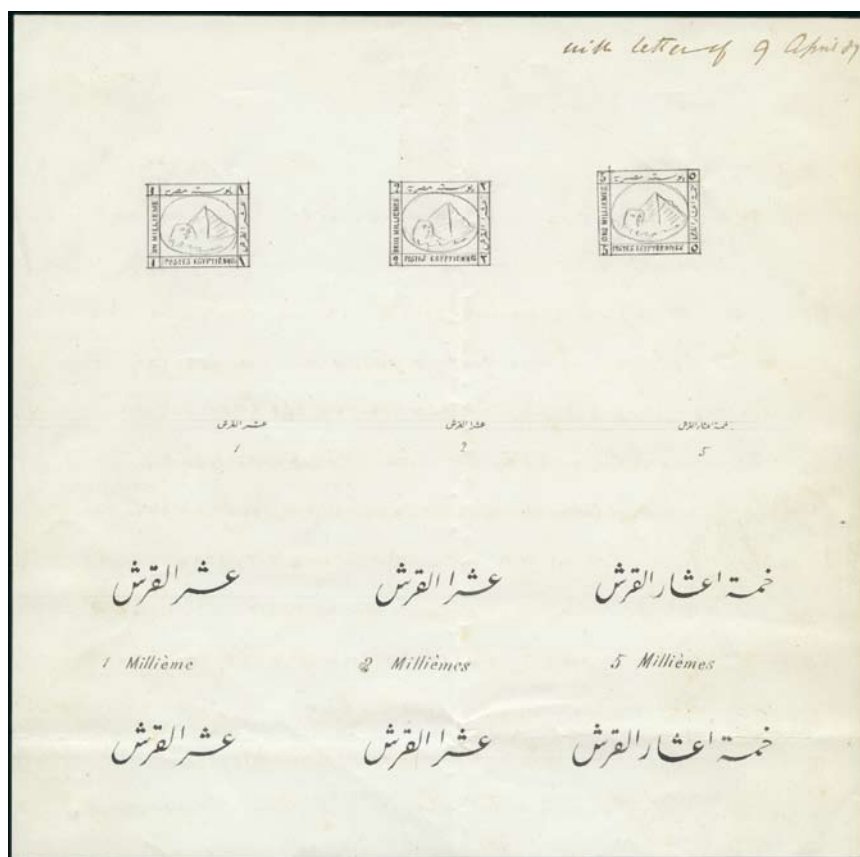 with letter of 9 April 87
1 بوستة مصرية ١
UN MILLIEME
عشر القرش
1 POSTES EGYPTIENNES ١
2 بوستة مصرية ٢
MILLIEMES
عشرا القرش
2 POSTES EGYPTIENNES ٢
5 بوستة مصرية ٥
MILLIEMES
5 POSTES EGYPTIENNES ٥
عشر القرش عشرا القرش خمسة اعشار القرش
1 2 5
عشر القرش عشرا القرش خمسة اعشار القرش
1 Millième 2 Millièmes 5 Millièmes
عشر القرش عشرا القرش خمسة اعشار القرش